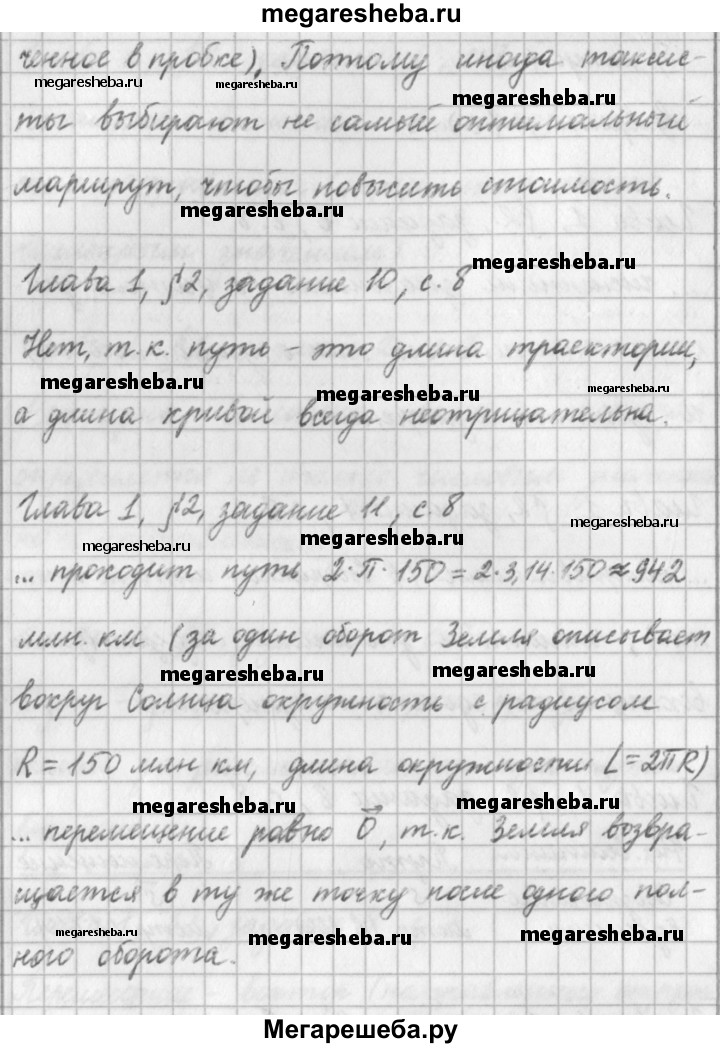 megaresheba.ru
ченное в пробке). Поэтому иногда таксис-
megaresheba.ru
megaresheba.ru
megaresheba.ru
ты выбирают не самый оптимальный
маршрут, чтобы повысить стоимость.
megaresheba.ru
megaresheba.ru
Глава 1, §2, задание 10, с. 8
Нет, т.к. путь – это длина траектории,
megaresheba.ru
megaresheba.ru
megaresheba.ru
а длина кривой всегда неотрицательна.
Глава 1, §2, задание 11, с. 8
megaresheba.ru
megaresheba.ru
megaresheba.ru
... проходит путь 2·π·150 = 2·3,14·150 ≈ 942
млн. км (за один оборот Земля описывает
megaresheba.ru
megaresheba.ru
вокруг Солнца окружность с радиусом
R = 150 млн км, длина окружности L = 2πR)
megaresheba.ru
megaresheba.ru
... перемещение равно 0⃗, т.к. Земля возвра-
щается в ту же точку после одного пол-
megaresheba.ru
megaresheba.ru
megaresheba.ru
ного оборота.
Мегарешеба.ру